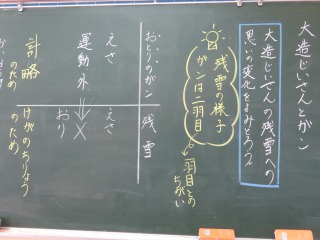 大造じいさんとガン
大造じいさんの残雪への
思いの変化をよみとろう。
残雪の様子
ガンは二羽目
一羽目との
ちがい
おとりのガン
残雪
えさ
えさ
運動 水
おり
計略
のため
けがのちりょう
のため